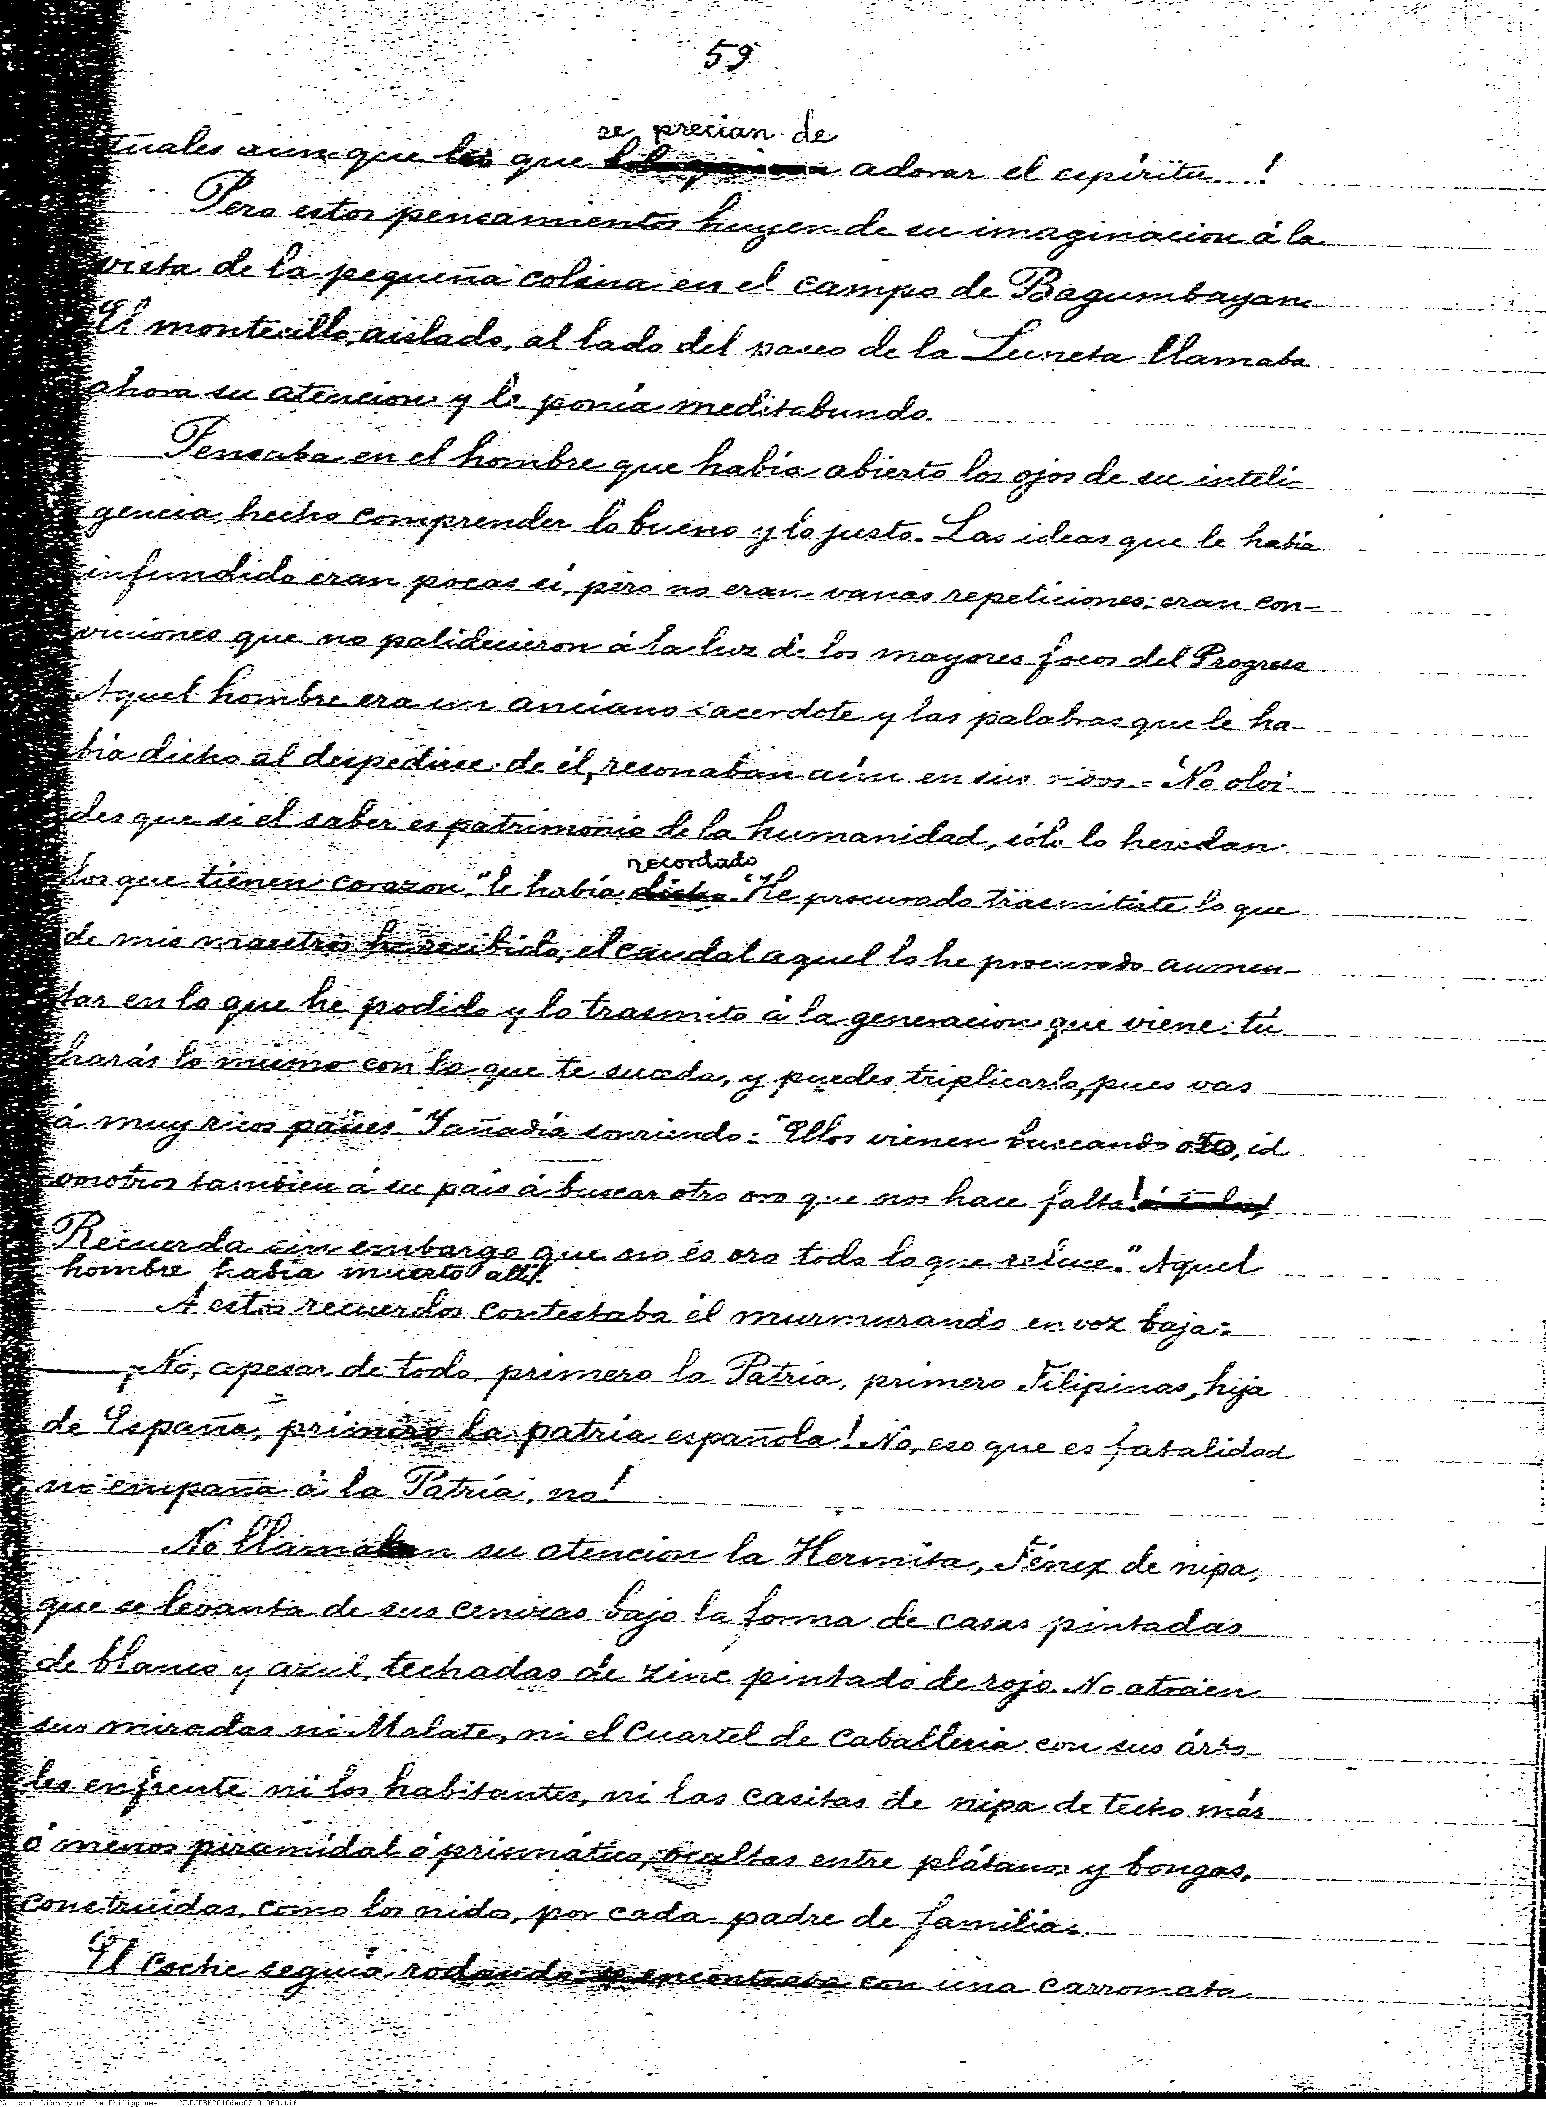 59
se precian de
tuales aun que los que adorar el espíritu...!
Pero estos pensamientos huyen de su imaginacion á la
vista de la pequeña colina en el campo de Bagumbayan.
El montecillo, aislado, al lado del paseo de la Luneta llamaba
ahora su atencion y le ponía meditabundo.
Pensaba en el hombre que había abierto los ojos de su inteli-
gencia, hecho comprender lo bueno y lo justo. Las ideas que le había
infundido eran pocas sí, pero no eran vanas repeticiones: eran con-
vicciones que no palidecieron á la luz de los mayores focos del Progreso
Aquel hombre era un anciano sacerdote y las palabras que le ha-
bía dicho al despedirse de él, resonaban aún en sus oidos.- "No olvi-
des que si el saber es patrimonio de la humanidad, sólo lo heredan
recordado
los que tienen corazon," le había dicho. "He procurado trasmitirte lo que
de mis maestros he recibido; el caudal aquel lo he procurado aumen-
tar en lo que he podido y lo trasmito á la generacion que viene: tú
harás lo mismo con la que te suceda, y puedes triplicarlo, pues vas
á muy ricos países" Y añadía sonriendo: "Ellos vienen buscando oro, id
vosotros tambien á su país á buscar otro oro que nos hace falta!
Recuerda sin embargo que no es oro todo lo que reluce." Aquel
hombre había muerto allí.
A estos recuerdos contestaba él murmurando en voz baja:
—¡No, apesar de todo, primero la Patria, primero Filipinas, hija
de España, primero la patria española! No, eso que es fatalidad
no empaña á la Patria, no!
No llamaban su atencion la Hermita, Fénix de nipa,
que se levanta de sus cenizas bajo la forma de casas pintadas
de blanco y azul, techadas de zinc pintado de rojo. No atraen
sus miradas ni Malate, ni el cuartel de caballeria con sus árbo-
les enfrente ni los habitantes, ni las casitas de nipa de techo más
ó menos piramidal ó prismático, ocultas entre plátanos y bongas,
construidas, como los nidos, por cada padre de familia.
El coche seguía rodando: se encontraba con una carromata